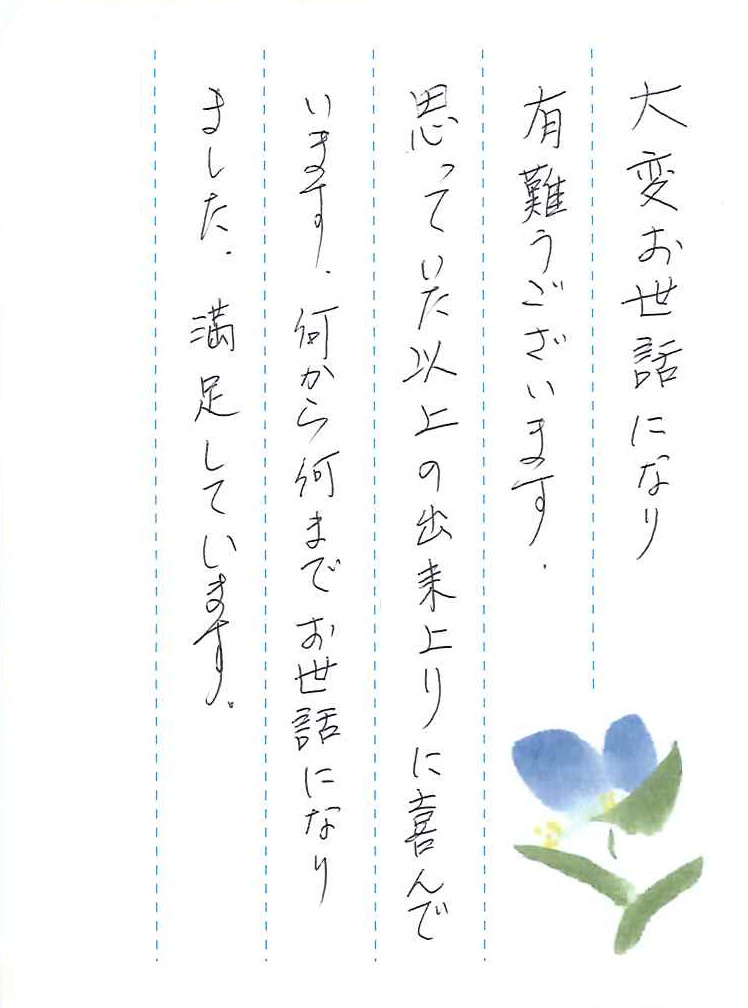 大変お世話になり
有難うございます.
思っていた以上の出来上りに喜んで
います.何から何までお世話になり
ました.満足しています。